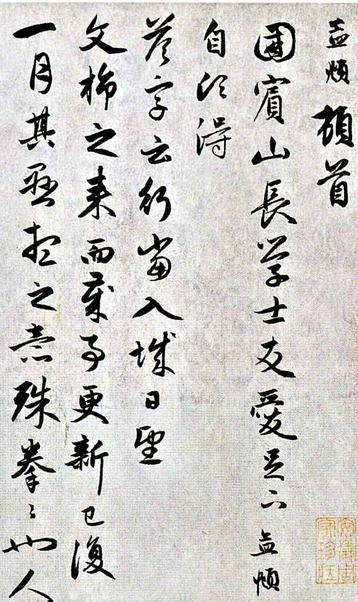 孟頫頓首
國賓山長學士友愛足下孟頫
自頃得
答字云行當入城日望
文旆之來而歲事更新已復
一月其馳想之意殊拳拳也人